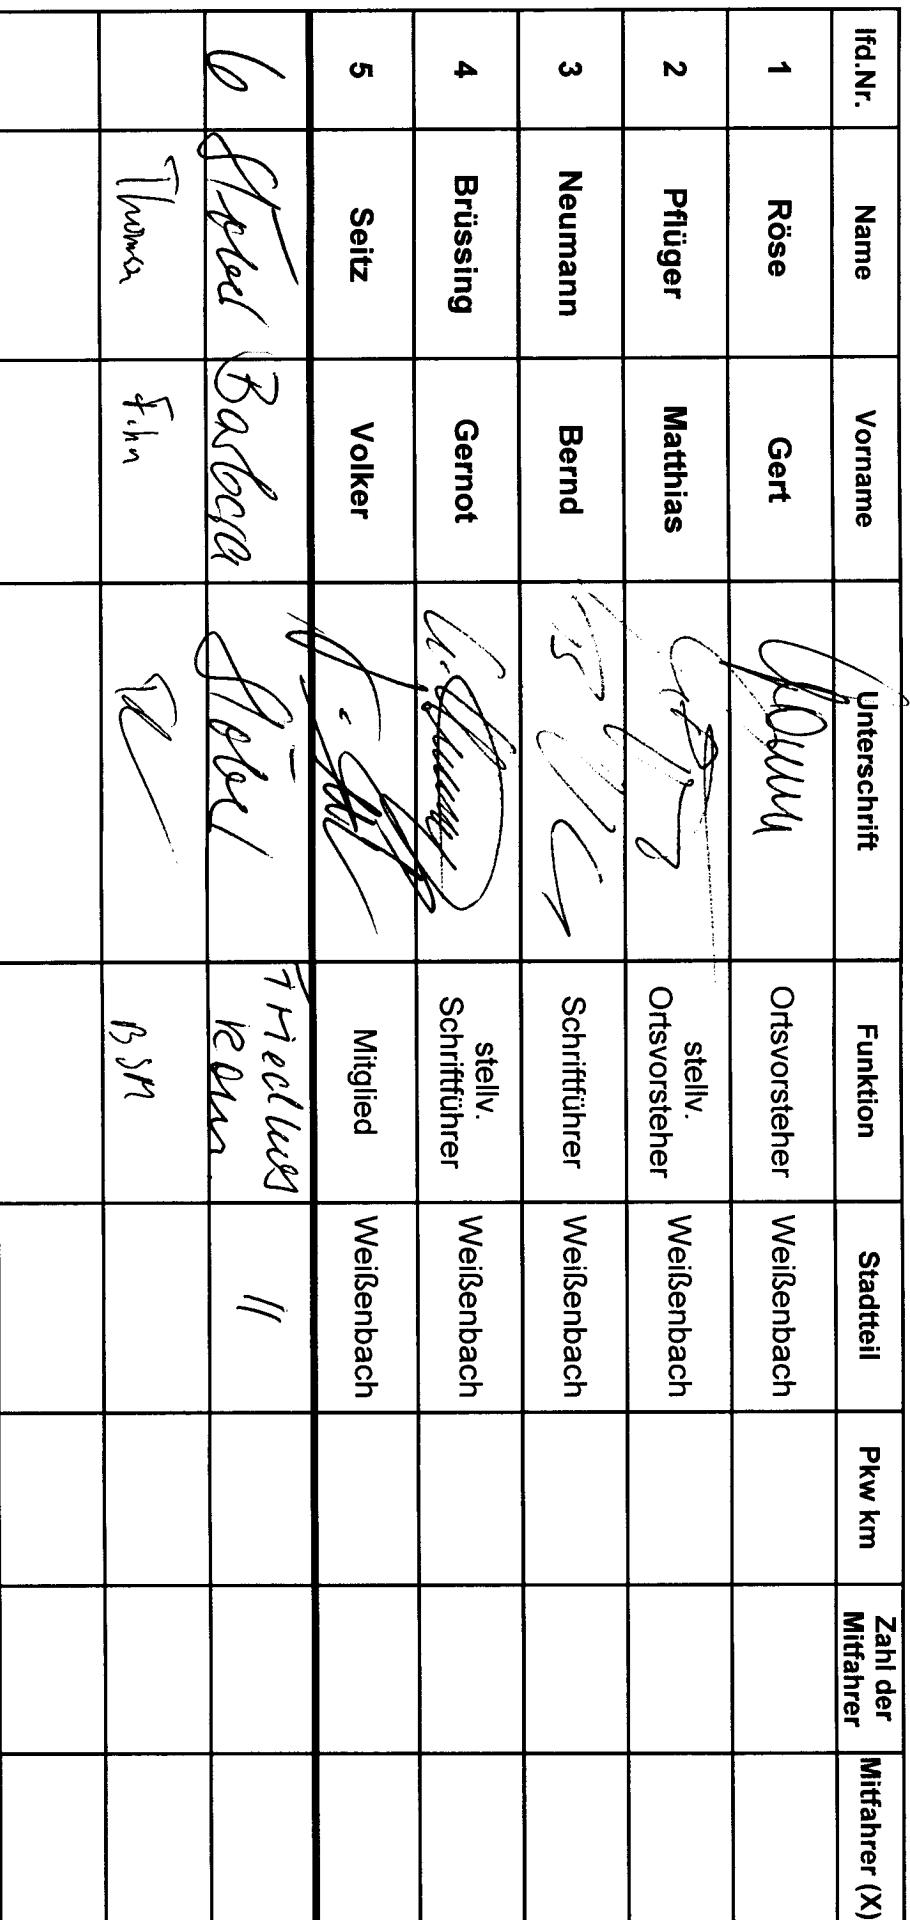 lfd.Nr. Name Vorname Unterschrift Funktion Stadtteil Pkw km Zahl der Mitfahrer Mitfahrer (X)
1 Röse Gert Ortsvorsteher Weißenbach
2 Pflüger Matthias stellv. Ortsvorsteher Weißenbach
3 Neumann Bernd Schriftführer Weißenbach
4 Brüssing Gernot stellv. Schriftführer Weißenbach
5 Seitz Volker Mitglied Weißenbach
6 Stöber Barbara Stöber "
Thomas Fehr BGM